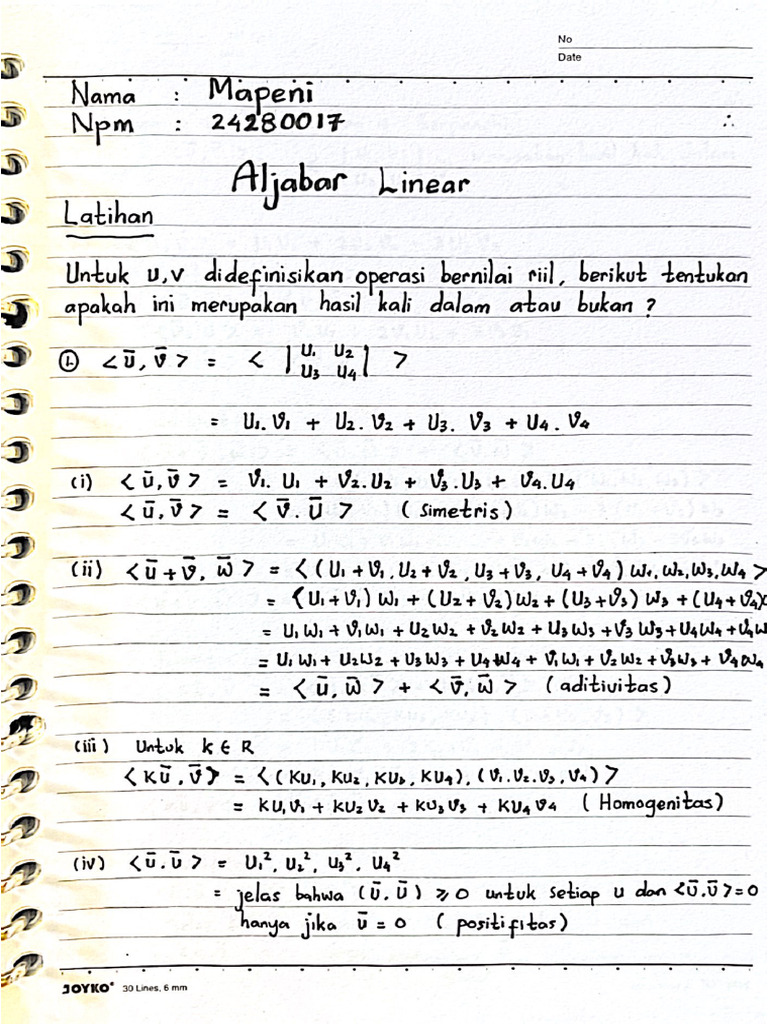 No
Date
Nama : Mapeni
Npm : 24280017
Aljabar Linear
Latihan
Untuk u,v didefinisikan operasi bernilai riil, berikut tentukan
apakah ini merupakan hasil kali dalam atau bukan ?
① <ū, v̄> = < |U₁ U₂
U₃ U₄| >
= U₁.V₁ + U₂.V₂ + U₃.V₃ + U₄.V₄
(i) <ū, v̄> = V₁.U₁ + V₂.U₂ + V₃.U₃ + V₄.U₄
<ū, v̄> = <v̄.ū> (Simetris)
(ii) <ū+v̄, w̄> = <(U₁+V₁, U₂+V₂, U₃+V₃, U₄+V₄) W₁, W₂, W₃, W₄>
= <(U₁+V₁) W₁ + (U₂+V₂) W₂ + (U₃+V₃) W₃ + (U₄+V₄)
= U₁W₁ + V₁W₁ + U₂W₂ + V₂W₂ + U₃W₃ + V₃W₃ + U₄W₄ + V₄W
= U₁W₁ + U₂W₂ + U₃W₃ + U₄W₄ + V₁W₁ + V₂W₂ + V₃W₃ + V₄W₄
= <ū, w̄> + <v̄, w̄> (aditivitas)
(iii) Untuk k ∈ R
<Kū, v̄> = <(KU₁, KU₂, KU₃, KU₄), (V₁.V₂.V₃, V₄)>
= KU₁V₁ + KU₂V₂ + KU₃V₃ + KU₄V₄ (Homogenitas)
(iv) <ū.ū> = U₁², U₂², U₃², U₄²
= jelas bahwa (ū.ū) ⩾ 0 untuk setiap u dan <ū.ū> = 0
hanya jika ū = 0 (positifitas)
JOYKO® 30 Lines, 6 mm